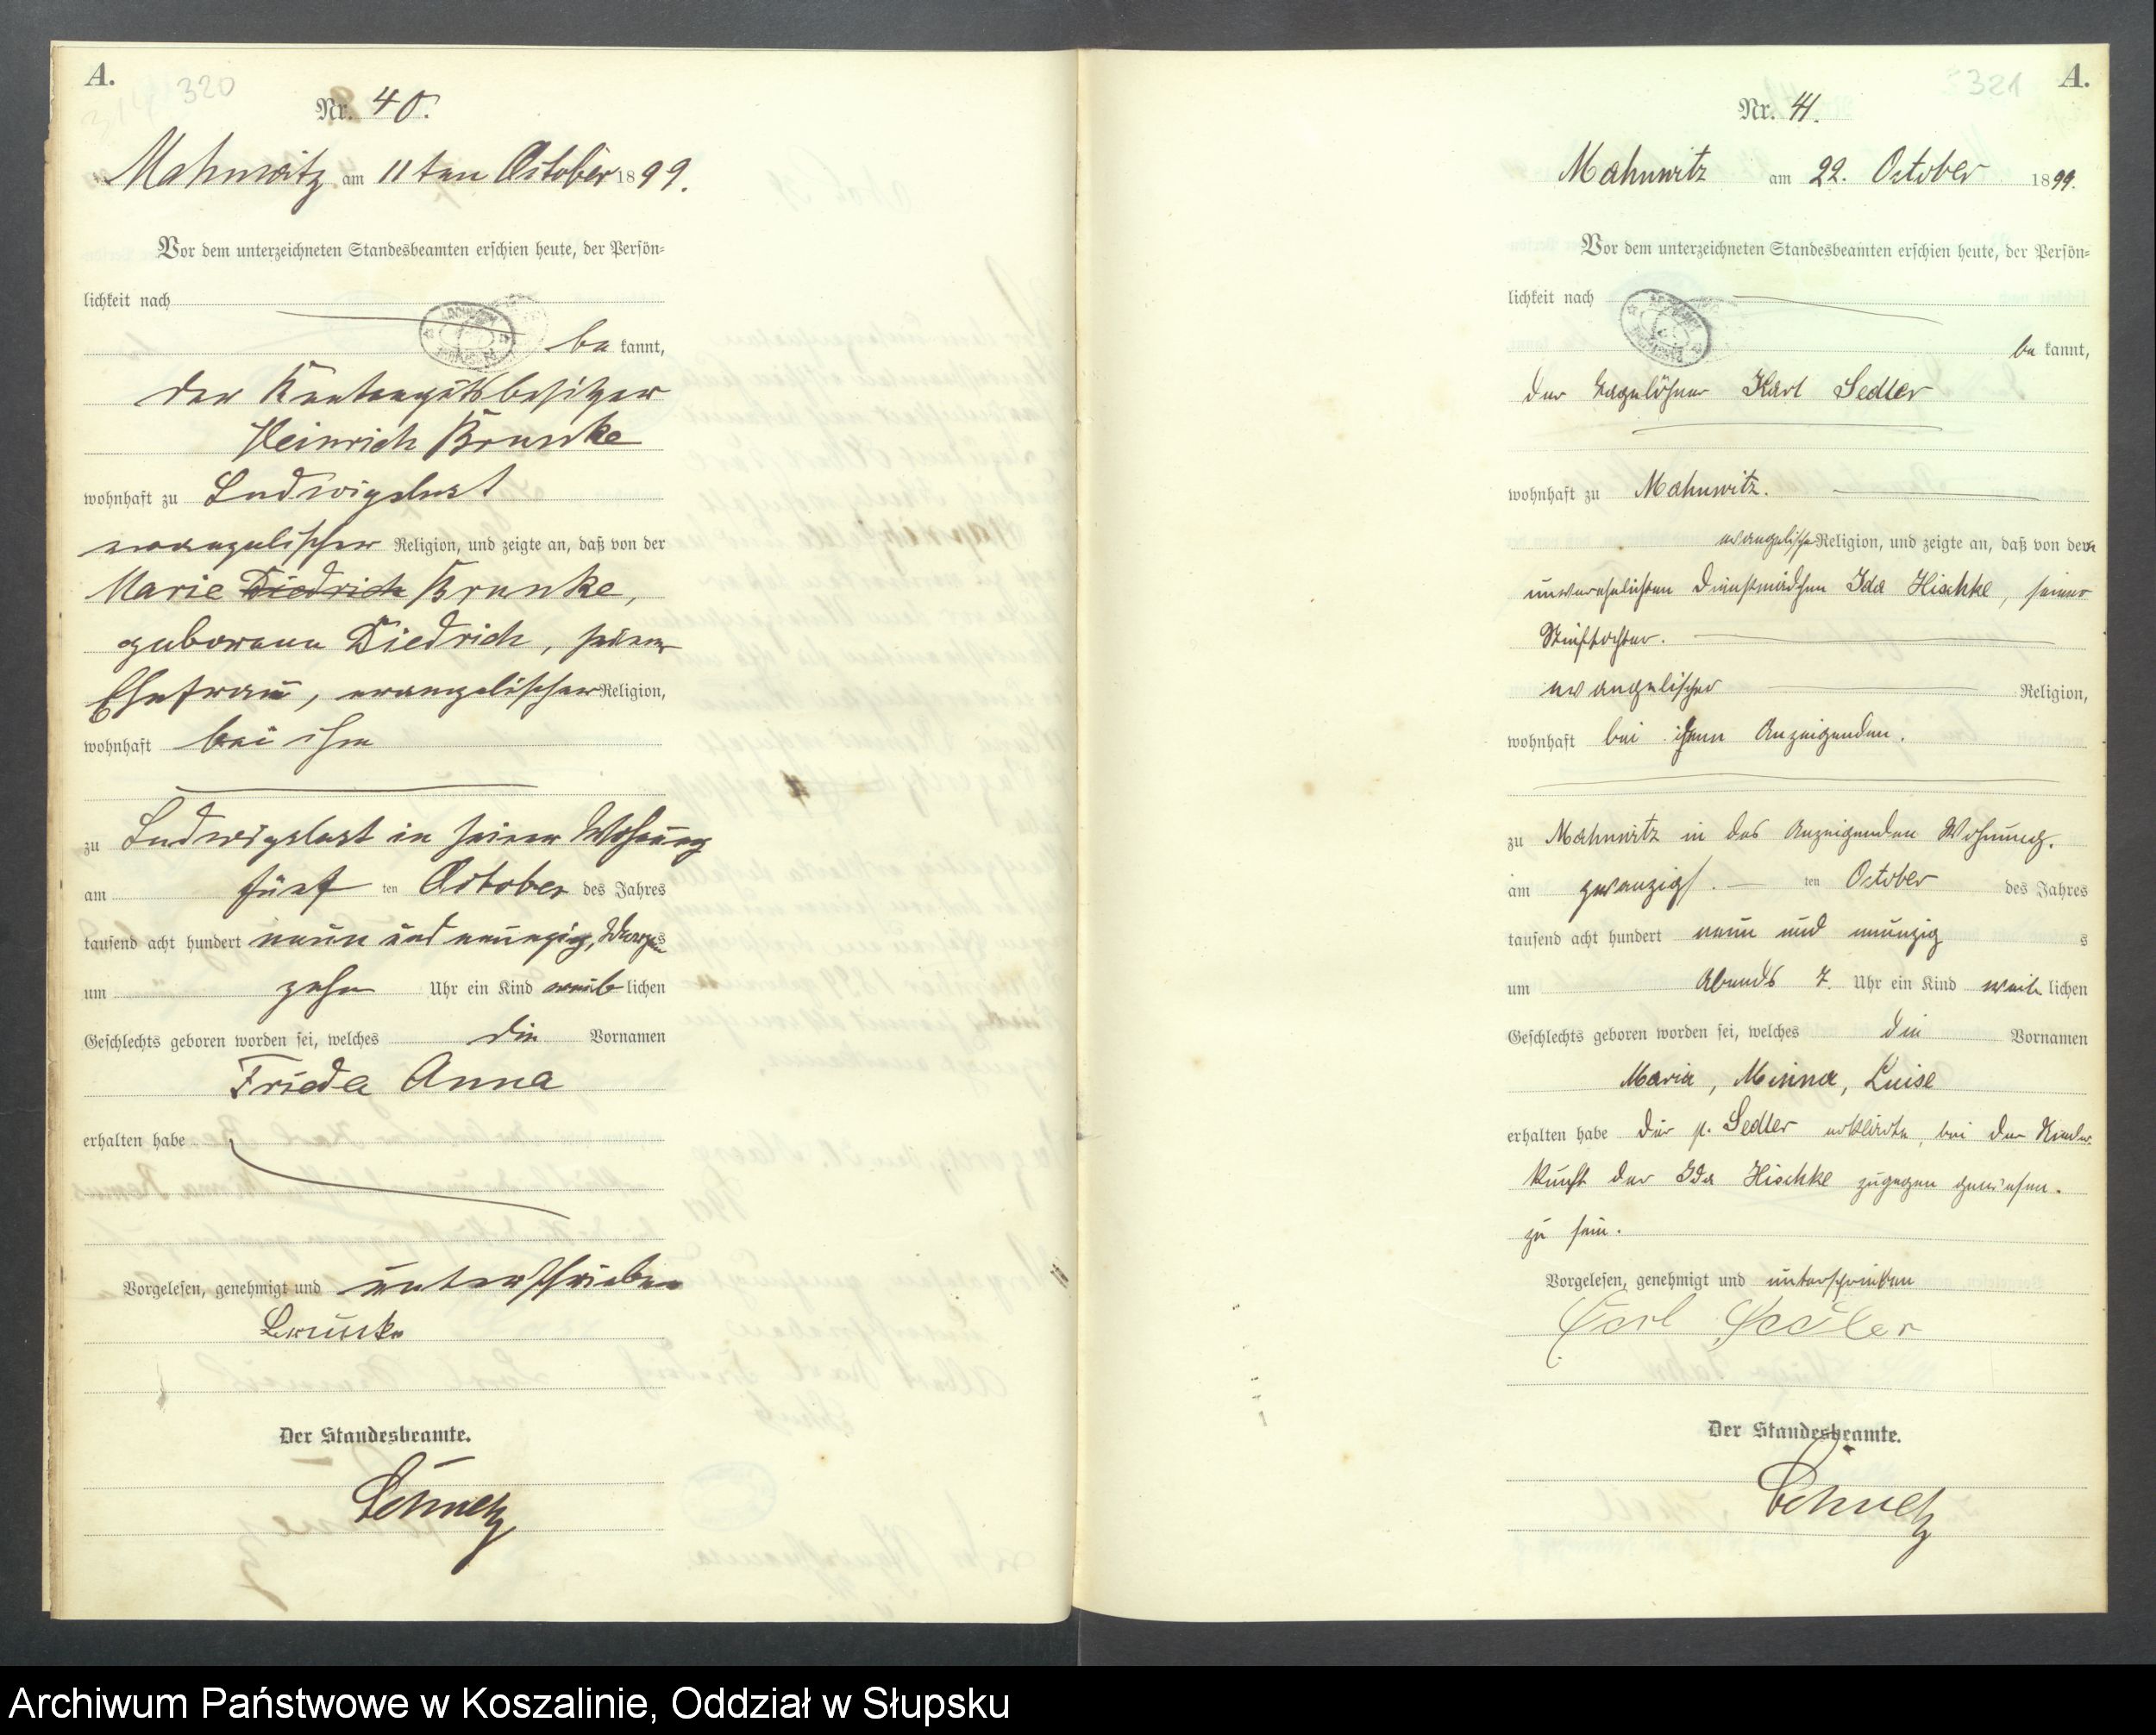 A.
320
Nr. 40.
Mahnwitz am 11ten October 1899.
Vor dem unterzeichneten Standesbeamten erschien heute, der Persön=
lichkeit nach
be kannt,
der Rentengutsbesitzer
Heinrich Brunke
wohnhaft zu Ludwigslust
evangelischer Religion, und zeigte an, daß von der
Marie Diedrich Brunke,
geborene Diedrich, seiner
Ehefrau, evangelischer Religion,
wohnhaft bei ihm
zu Ludwigslust in seiner Wohnung
am fünf ten October des Jahres
tausend acht hundert neun und neunzig, Morgens
um zehn Uhr ein Kind weib lichen
Geschlechts geboren worden sei, welches die Vornamen
Frieda Anna
erhalten habe
Vorgelesen, genehmigt und unterschrieben
Brunke
Der Standesbeamte.
Schuetz
321
A.
Nr. 41.
Mahnwitz am 22. October 1899.
Vor dem unterzeichneten Standesbeamten erschien heute, der Persön=
lichkeit nach
be kannt,
der Tagelöhner Karl Sedler
wohnhaft zu Mahnwitz.
evangelischer Religion, und zeigte an, daß von der
unverehelichten Dienstmädchen Ida Hischke, seiner
Stieftochter.
evangelischer Religion,
wohnhaft bei dem Anzeigenden.
zu Mahnwitz in des Anzeigenden Wohnung.
am zwanzigs. ten October des Jahres
tausend acht hundert neun und neunzig s
um Abends 7. Uhr ein Kind weib lichen
Geschlechts geboren worden sei, welches die Vornamen
Maria, Minna, Luise
erhalten habe der p. Sedler erklärte, bei der Nieder-
kunft der Ida Hischke zugegen gewesen.
zu sein.
Vorgelesen, genehmigt und unterschrieben
Carl Sedler
Der Standesbeamte.
Schuetz
Archiwum Państwowe w Koszalinie, Oddział w Słupsku